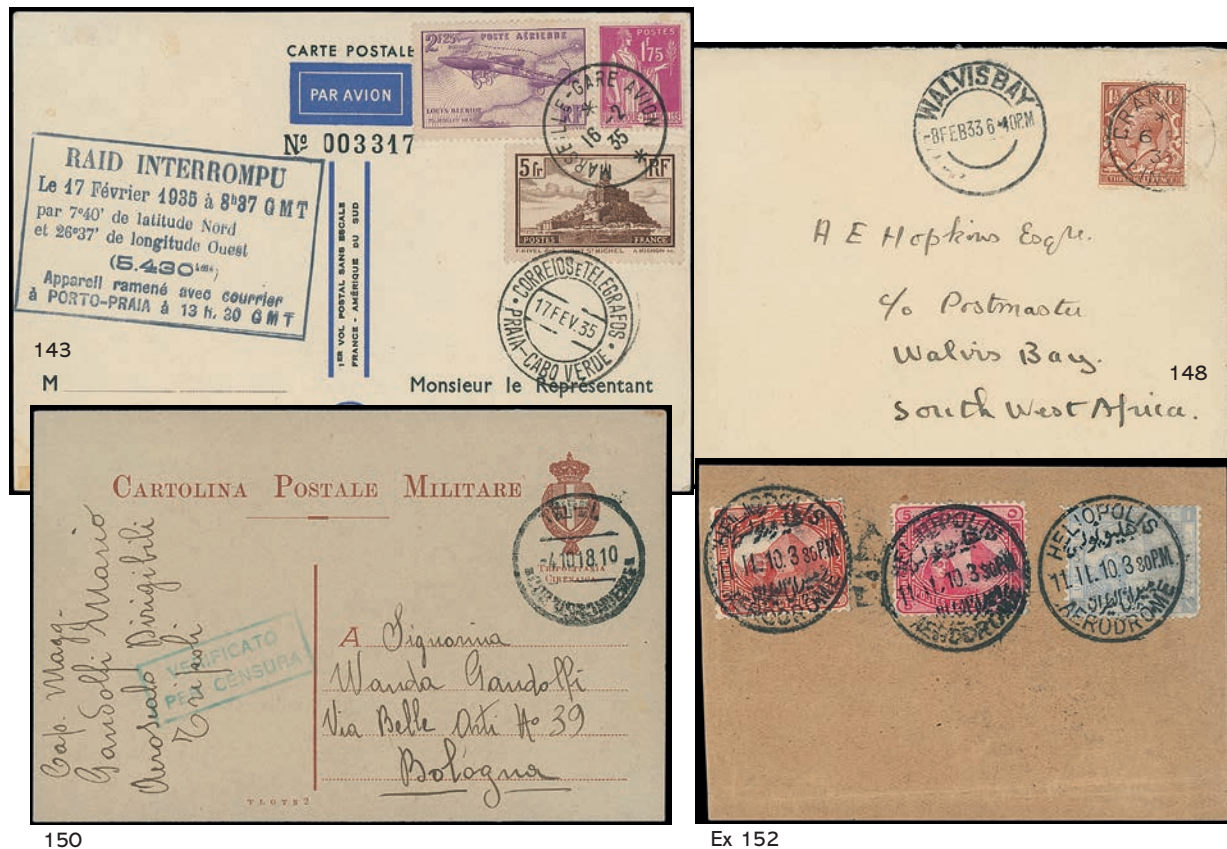 CARTE POSTALE
PAR AVION
Nº 003317
2F25 POSTE AÉRIENNE
LOUIS BLERIOT
RF
POSTES
1F75
MARSEILLE-GARE AVION
16-2
35
5fr RF
POSTES FRANCE
MONT ST MICHEL
RAID INTERROMPU
Le 17 Février 1935 à 8h37 GMT
par 7°40' de latitude Nord
et 26°37' de longitude Ouest
(5.430 kms)
Appareil ramené avec courrier
à PORTO-PRAIA à 13 h. 30 GMT
1ER VOL POSTAL SANS ESCALE
FRANCE - AMÉRIQUE DU SUD
CORREIOS E TELEGRAFOS
17 FEV. 35
PRAIA-CABO VERDE
143
M
Monsieur le Représentant
WALVIS BAY
-8 FEB 33 6-40PM
CRAN
6
A E Hopkins Esqre.
c/o Postmaster
Walvis Bay.
South West Africa.
148
CARTOLINA POSTALE MILITARE
-4.10.18.10
TRIPOLITANIA
CIRENAICA
Cap. Magg.
Gandolfi Mario
Aeroscalo Dirigibili
Tripoli
VERIFICATO
PER CENSURA
A Signorina
Wanda Gandolfi
Via Belle Arti Nº 39
Bologna
150
HELIOPOLIS
11.II.10.3 30P.M.
AERODROME
HELIOPOLIS
11.II.10.3 30P.M.
AERODROME
HELIOPOLIS
هليوبوليس
11.II.10.3 30P.M.
AERODROME
Ex 152